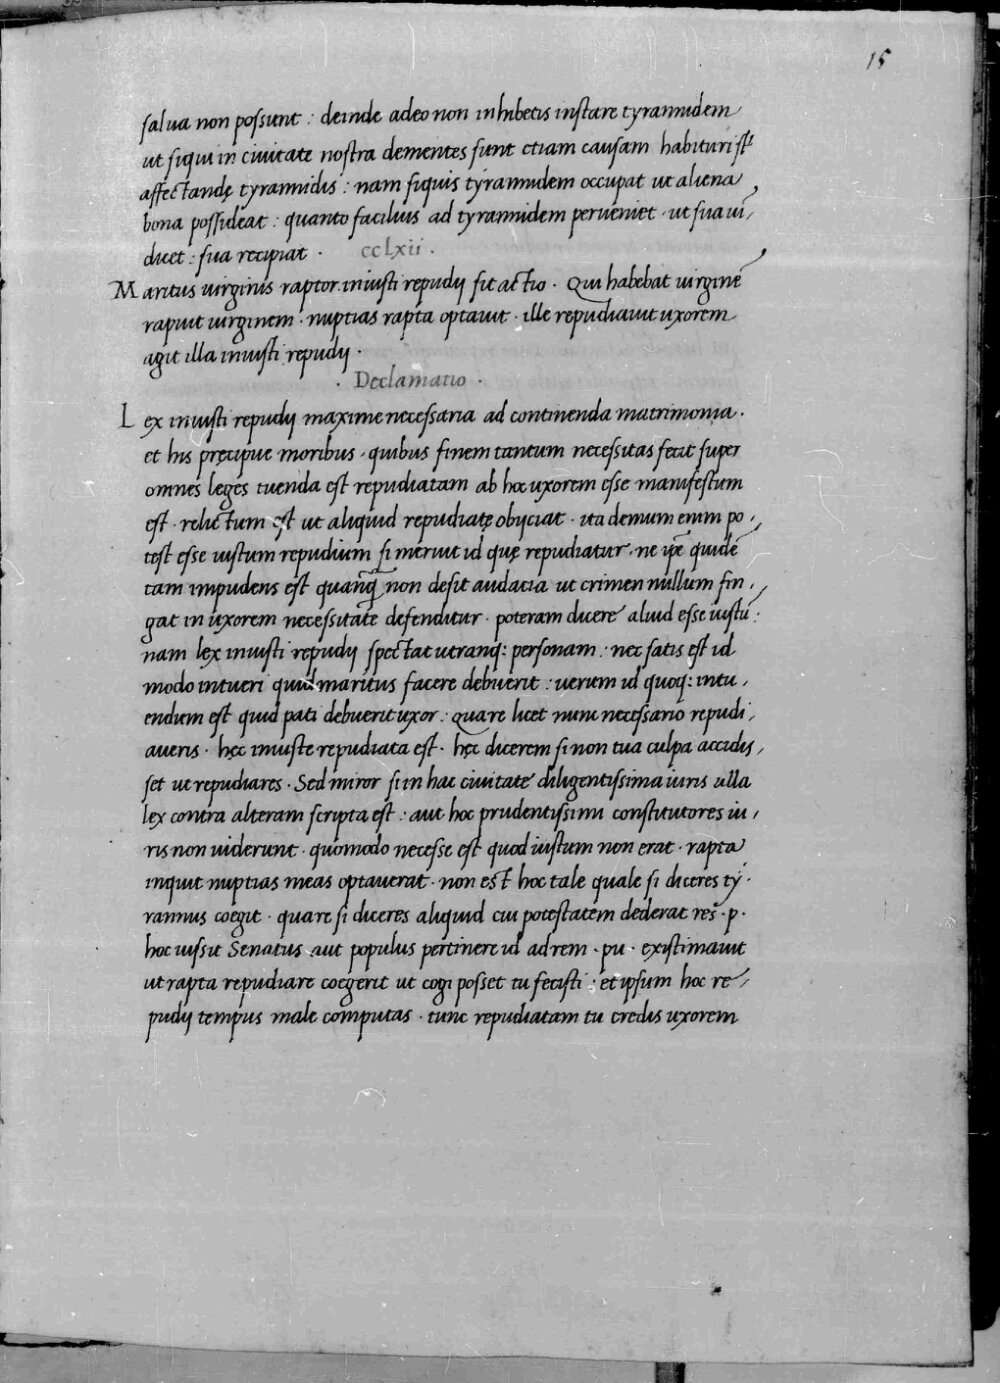 15
salua non possunt : deinde adeo non inhibetis instare tyrannidem
ut siqui in ciuitate nostra dementes sunt etiam causam habituri st̃
affectandę tyrannidis : nam siquis tyrannidem occupat ut aliena
bona possideat : quanto facilius ad tyrannidem perueniet · ut sua ui,
dicet : sua recipiat · cclxii ·
Maritus uirginis raptor. iniusti repudij sit actio · Qui habebat uirginẽ
rapuit uirginem · nuptias rapta optauit · ille repudiauit uxorem
agit illa iniusti repudij ·
· Declamatio ·
Lex iniusti repudij maxime necessaria ad continenda matrimonia ·
et his pręcipue moribus · quibus finem tantum necessitas fecit super
omnes leges tuenda est repudiatam ab hoc uxorem esse manifestum
est · relictum est ut aliquid repudiatę obijciat · ita demum enim po,
test esse iustum repudium si meruit id quę repudiatur · ne ip̃e quidẽ
tam impudens est quanq̃ non desit audacia ut crimen nullum fin,
gat in uxorem necessitate defenditur · poteram dicere aliud esse iustũ :
nam lex iniusti repudij spectat utranq: personam : nec satis est id
modo intueri quid maritus facere debuerit : uerum id quoq: intu,
endum est quid pati debuerit uxor : quare licet nunc necessario repudi,
aueris · hęc iniuste repudiata est · hęc dicerem si non tua culpa accidis,
set ut repudiares · Sed miror si in hac ciuitate diligentissima iuris ulla
lex contra alteram scripta est : aut hoc prudentissimi constitutores iu,
ris non uiderunt · quomodo necesse est quod iustum non erat · rapta
inquit nuptias meas optauerat · non est hoc tale quale si diceres ty·
rannus coegit · quare si diceres aliquid cui potestatem dederat res · p ·
hoc iussit Senatus aut populus pertinere id ad rem · pu · existimauit
ut rapta repudiare coegerit ut cogi posset tu fecisti : et ipsum hoc re,
pudij tempus male computas · tunc repudiatam tu credis uxorem